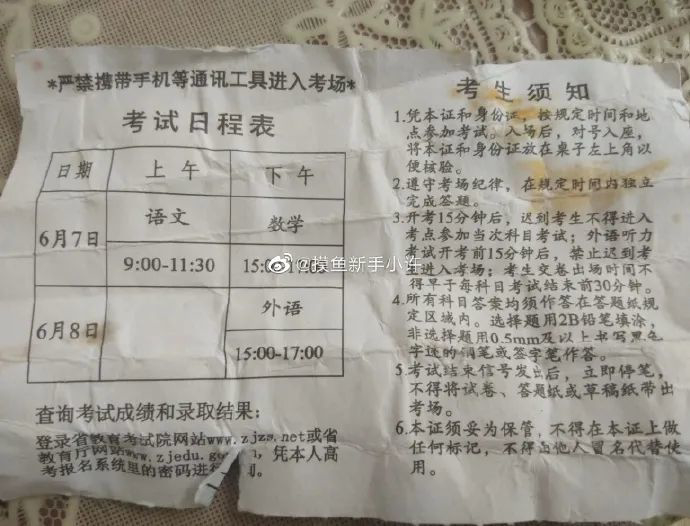 *严禁携带手机等通讯工具进入考场*
考试日程表
日期 上午 下午
6月7日 语文 数学
9:00-11:30 15:00-17:00
6月8日 外语
15:00-17:00
查询考试成绩和录取结果：
登录省教育考试院网站www.zjzs.net或省
教育厅网站www.zjedu.go 凭本人高
考报名系统里的密码进行
考生须知
1.凭本证和身份证，按规定时间和地
点参加考试。入场后，对号入座，
将本证和身份证放在桌子左上角以
便核验。
2.遵守考场纪律，在规定时间内独立
完成答题。
3.开考15分钟后，迟到考生不得进入
考点参加当次科目考试；外语听力
考试开考前15分钟后，禁止迟到考
生进入考场；考生交卷出场时间不
得早于每科目考试结束前30分钟。
4.所有科目答案均须作答在答题纸规
定区域内。选择题用2B铅笔填涂，
非选择题用0.5mm及以上书写黑色
字迹的钢笔或签字笔作答。
5.考试结束信号发出后，立即停笔，
不得将试卷、答题纸或草稿纸带出
考场。
6.本证须妥为保管，不得在本证上做
任何标记，不得由他人冒名代替使
用。
@摸鱼新手小许